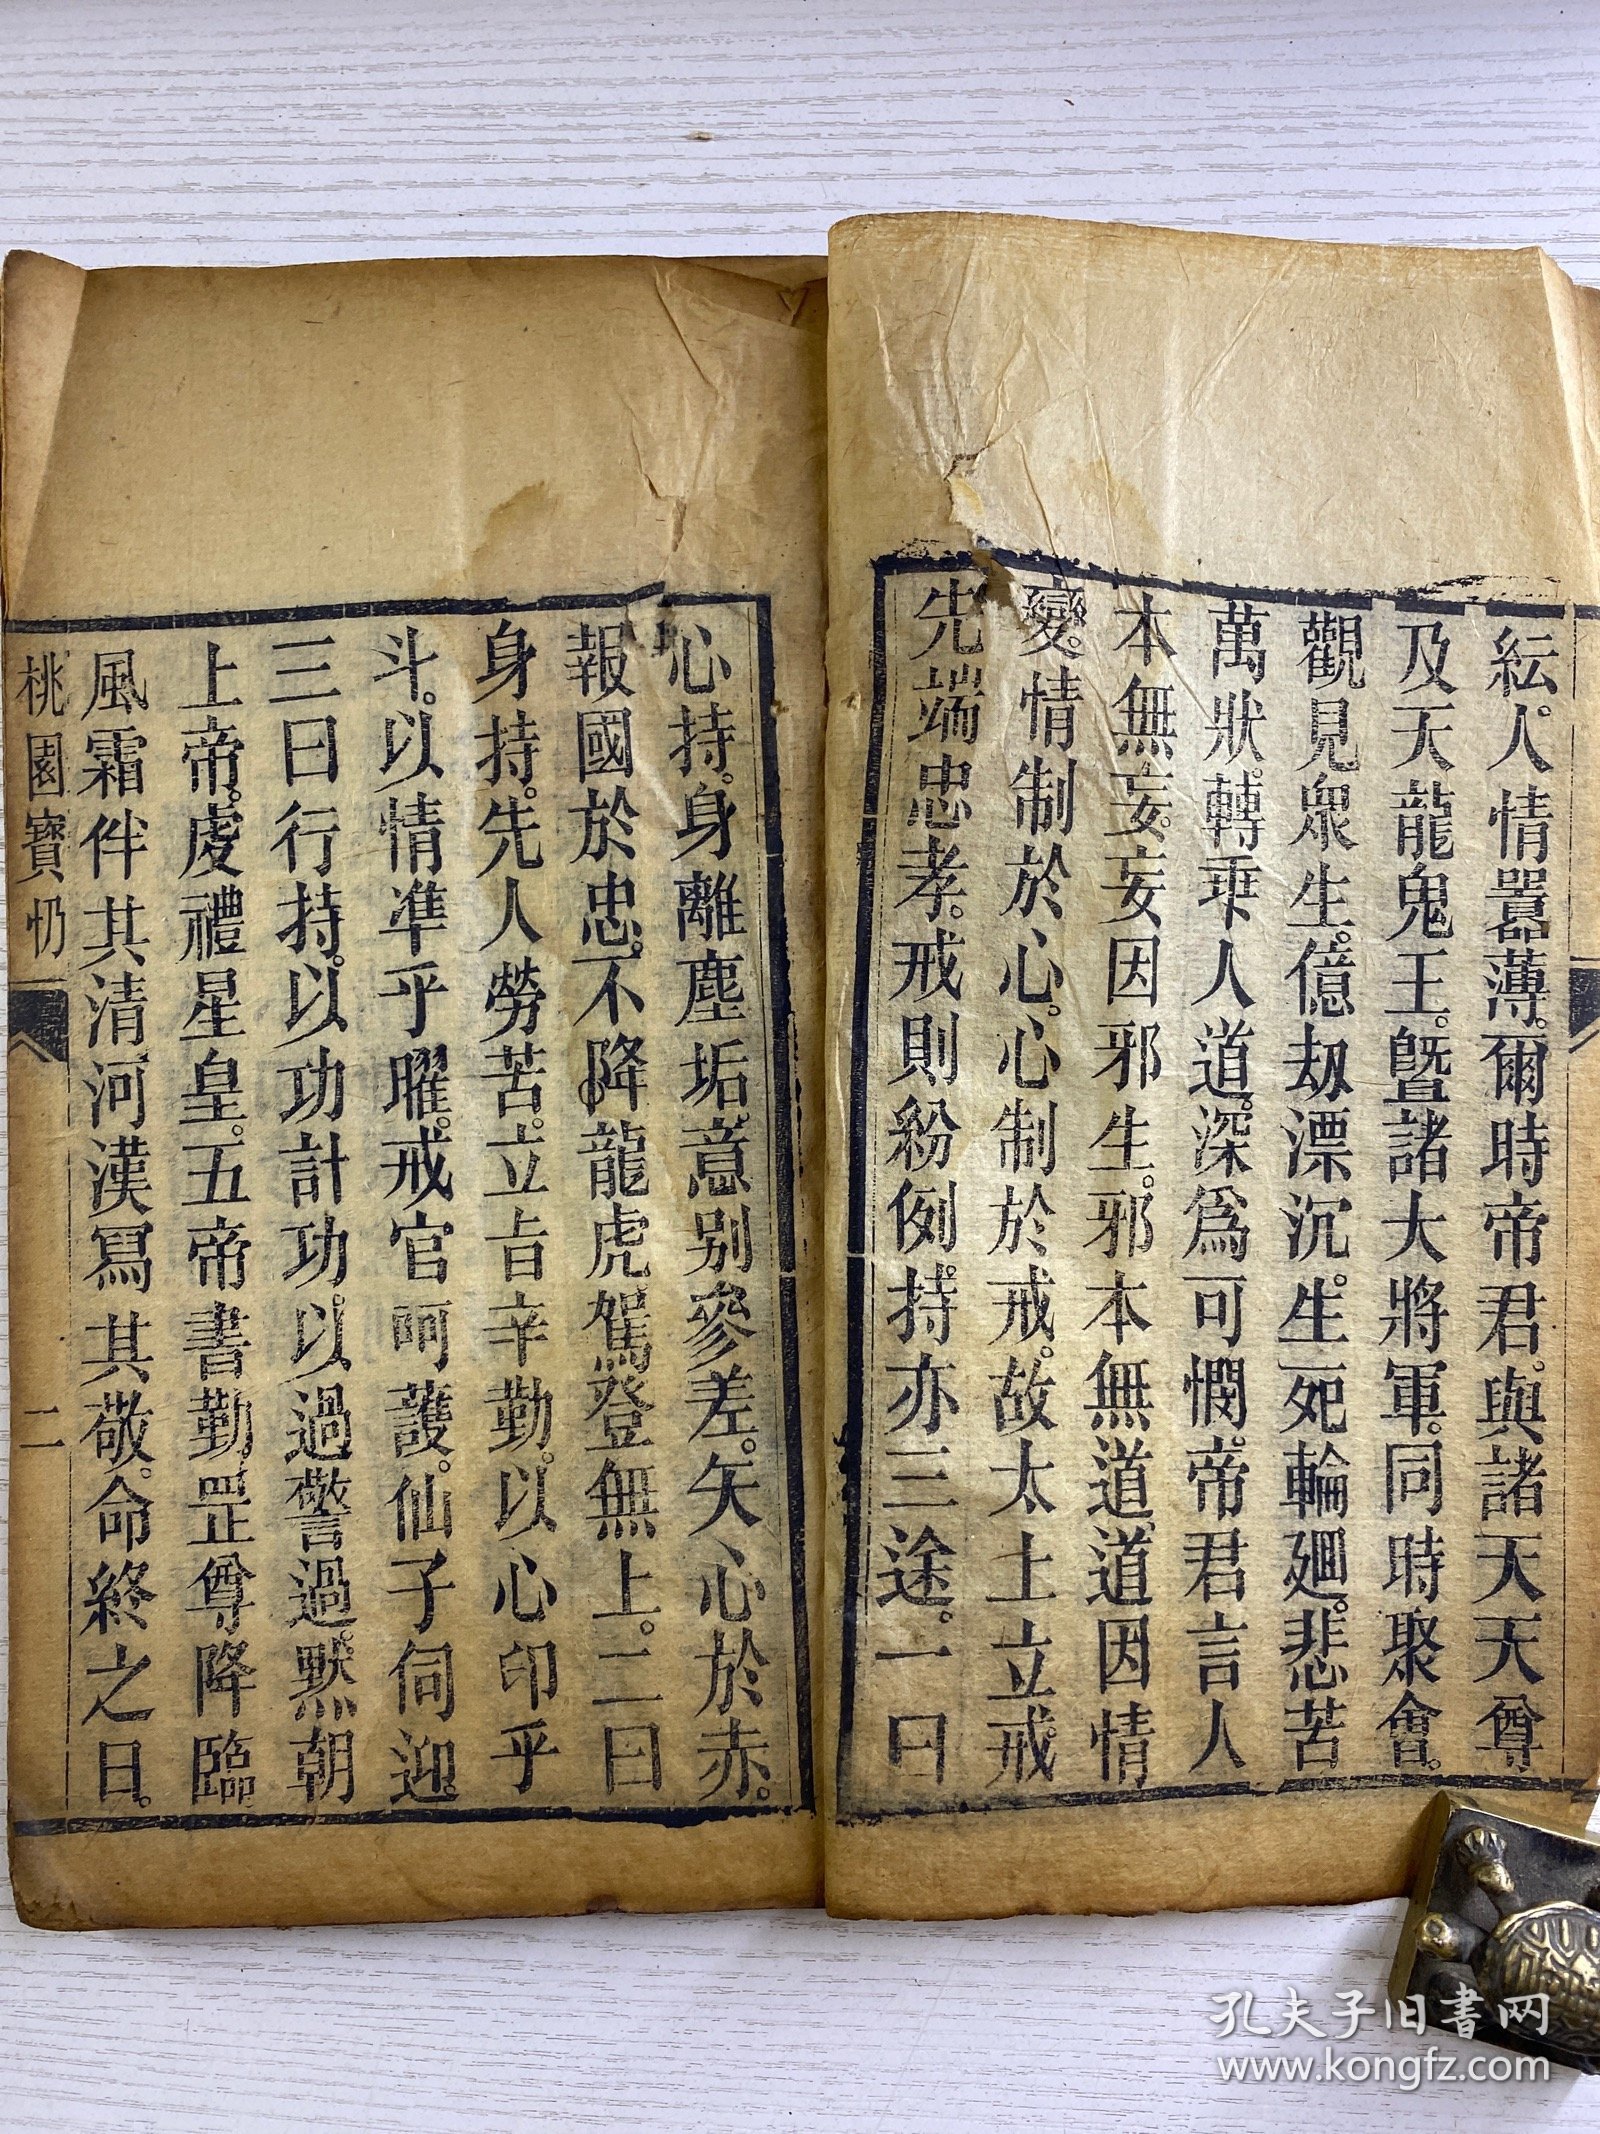 紜。人情嚣薄。爾時帝君。與諸天天尊
及天龍鬼王。暨諸大將軍。同時聚會。
觀見眾生。億刼漂沉。生死輪廻。悲苦
萬狀。轉乘人道。深爲可憫。帝君言人
本無妄。妄因邪生。邪本無道。道因情
變。情制於心。心制於戒。故太上立戒
先端忠孝。戒則紛例。持亦三途。一曰
心持。身離塵垢。意别參差。矢心於赤。
報國於忠。不降龍虎。駕登無上。二曰
身持。先人勞苦。立㫖辛勤。以心印乎
斗。以情準乎曜。戒官呵護。仙子伺迎。
三曰行持。以功計功。以過警過。默朝
上帝。虔禮星皇。五帝書勤。罡尊降臨
風霜伴其清河漢冩其敬。命終之日。
桃園寶
二
孔夫子旧书网
www.kongfz.com